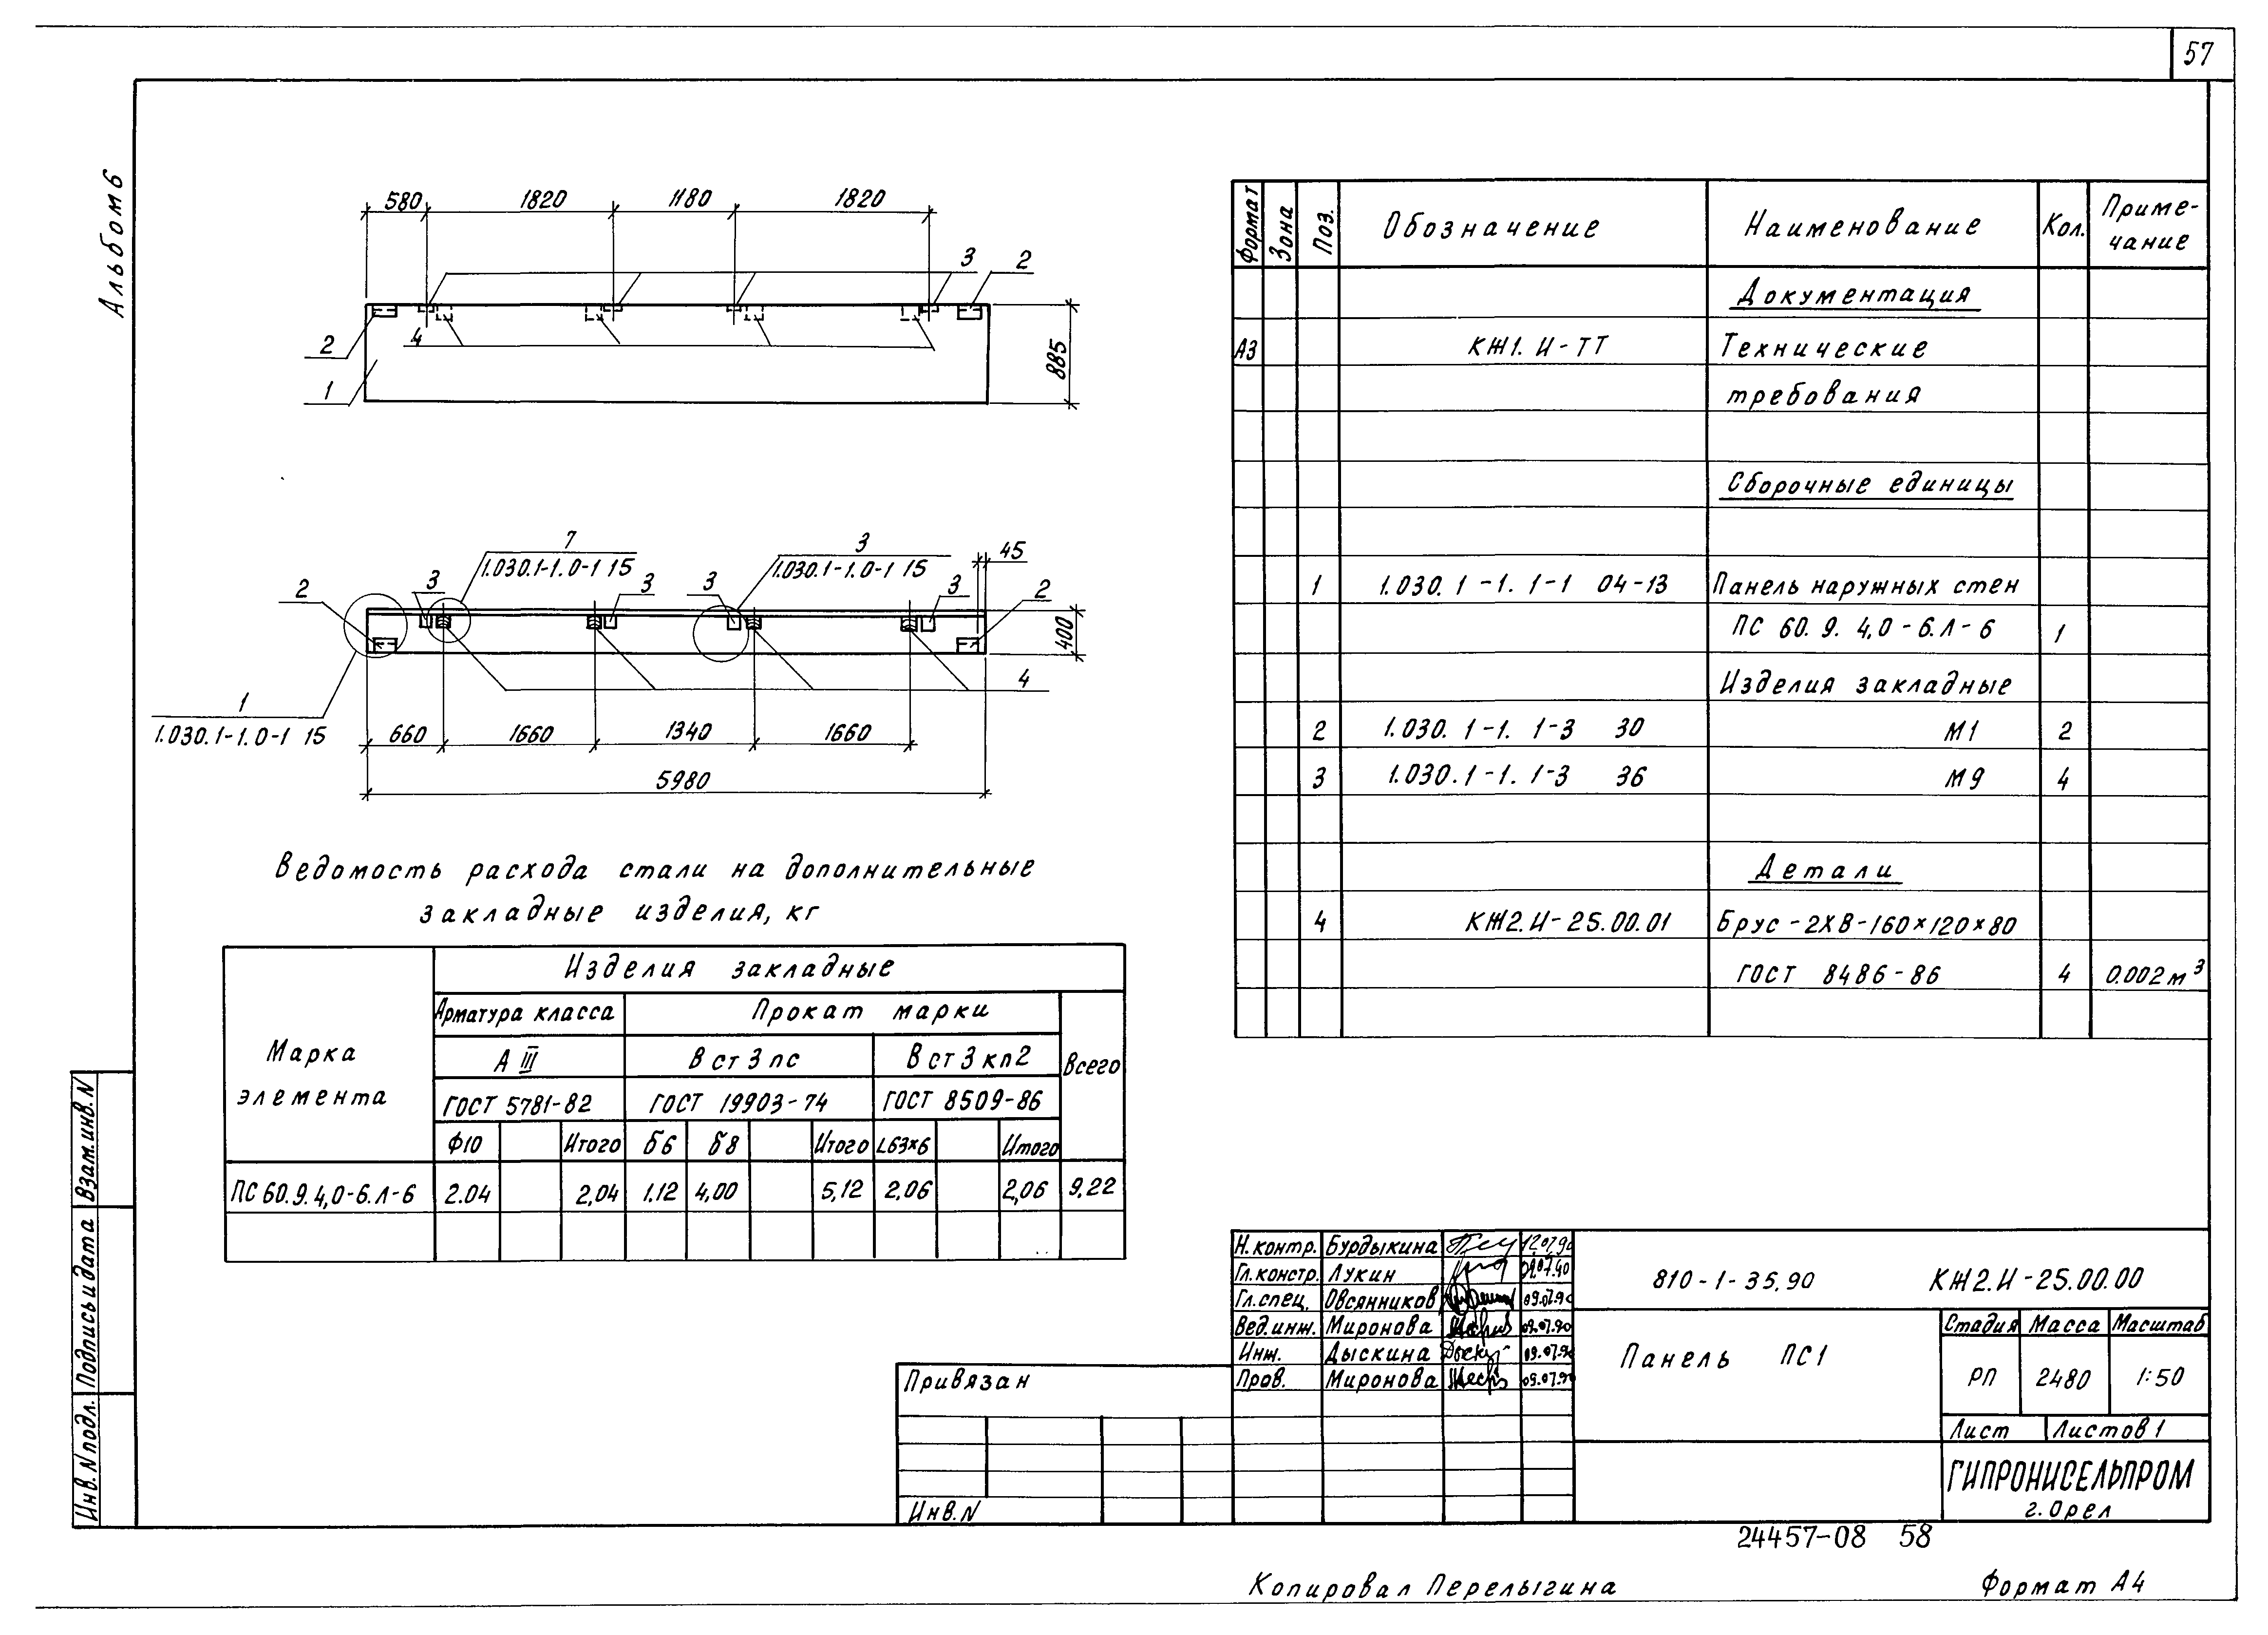 57
Альбом 6
580 1820 1180 1820
3 2
2 4
1
885
7
1.030.1-1.0-1 15
3
1.030.1-1.0-1 15
45
2 3 3 3 3 2
400
4
1
1.030.1-1.0-1 15
660 1660 1340 1660
5980
Ведомость расхода стали на дополнительные
закладные изделия, кг
Марка элемента
Изделия закладные
Арматура класса Прокат марки Всего
А III В ст 3 пс В ст 3 кп2
ГОСТ 5781-82 ГОСТ 19903-74 ГОСТ 8509-86
Ф10 Итого δ6 δ8 Итого L63×6 Итого
ПС 60.9.4,0-6.Л-6 2.04 2,04 1.12 4,00 5,12 2,06 2,06 9,22
Формат Зона Поз. Обозначение Наименование Кол. Приме-
чание
Документация
А3 КЖ1.И-ТТ Технические
требования
Сборочные единицы
1 1.030.1-1.1-1 04-13 Панель наружных стен
ПС 60.9.4,0-6.Л-6 1
Изделия закладные
2 1.030.1-1.1-3 30 М1 2
3 1.030.1-1.1-3 36 М9 4
Детали
4 КЖ2.И-25.00.01 Брус-2ХВ-160×120×80
ГОСТ 8486-86 4 0.002 м³
Н.контр. Бурдыкина 12.07.90
Гл.констр. Лукин 09.07.90
Гл.спец. Овсянников 09.07.90
Вед.инж. Миронова 09.07.90
Инж. Дыскина 09.07.90
Пров. Миронова 09.07.90
810-1-35.90 КЖ2.И-25.00.00
Панель ПС1
Стадия Масса Масштаб
РП 2480 1:50
Лист Листов 1
ГИПРОНИСЕЛЬПРОМ
г. Орел
Привязан
Инв. N
Взам.инв. N
Подпись и дата
Инв. N подл.
24457-08 58
Копировал Перелыгина Формат А4